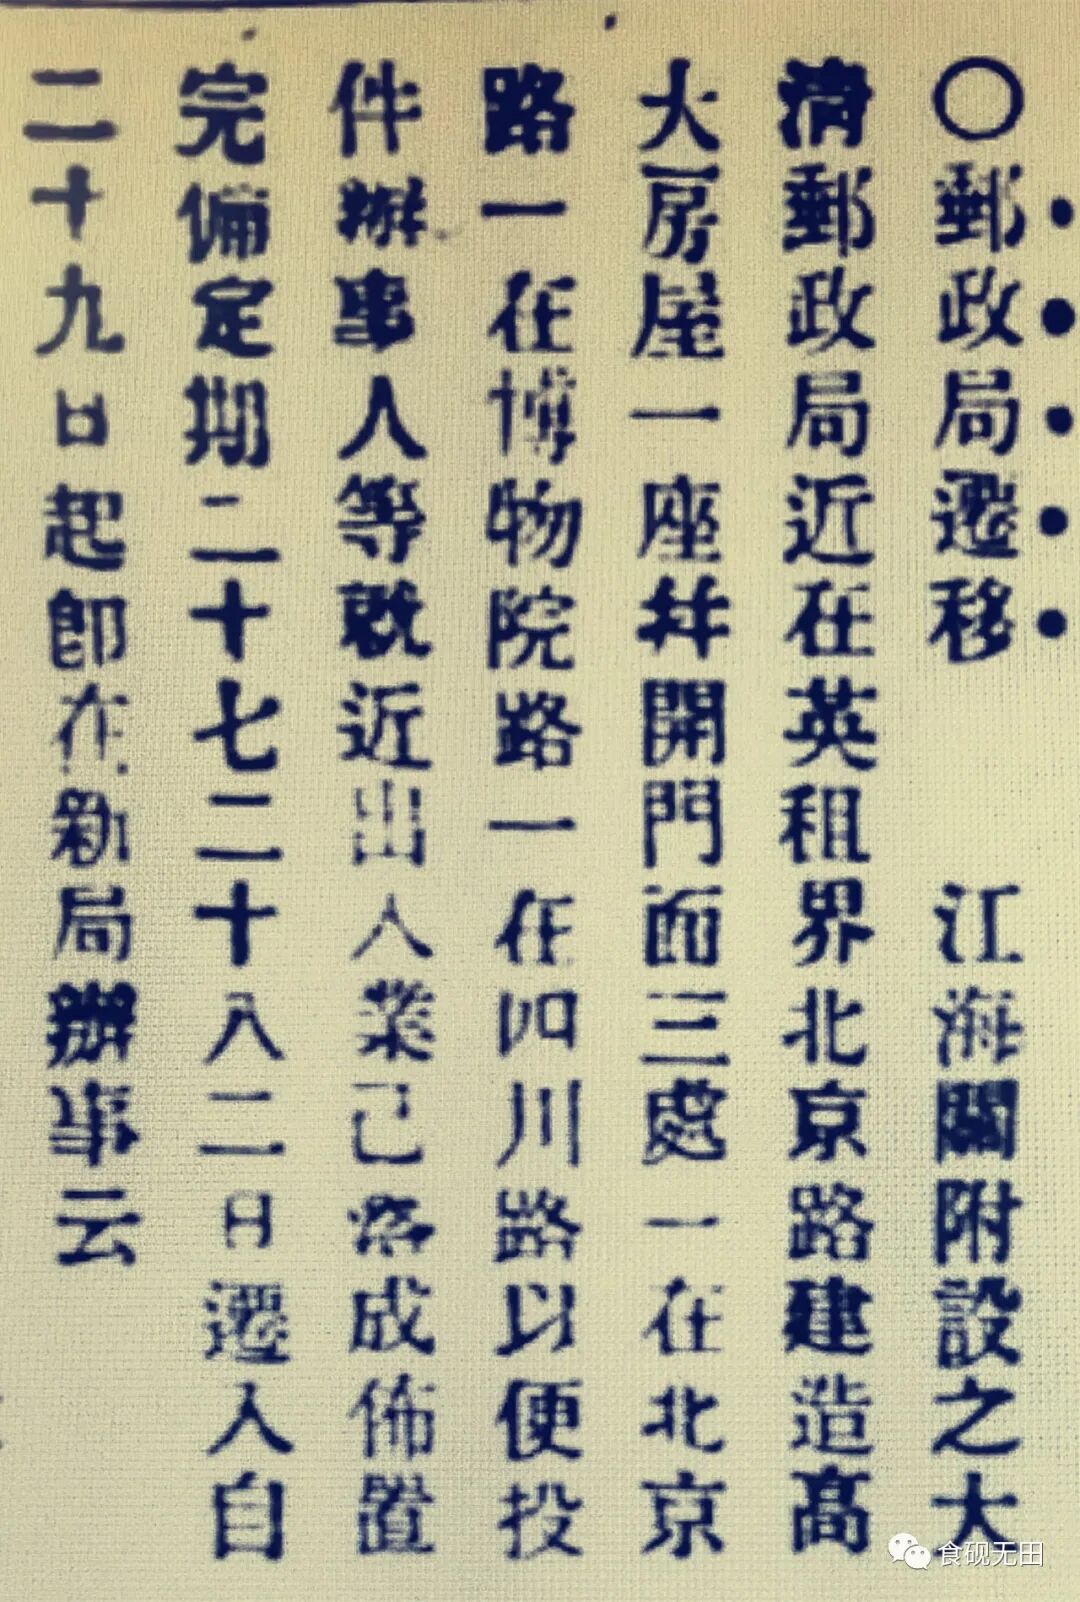 〇郵政局遷移　江海關附設之大
清郵政局近在英租界北京路建造高
大房屋一座幷開門面三處一在北京
路一在博物院路一在四川路以便投
件辦事人等就近出入業已落成佈置
完備定期二十七二十八二日遷入自
二十九日起卽在新局辦事云
食砚无田